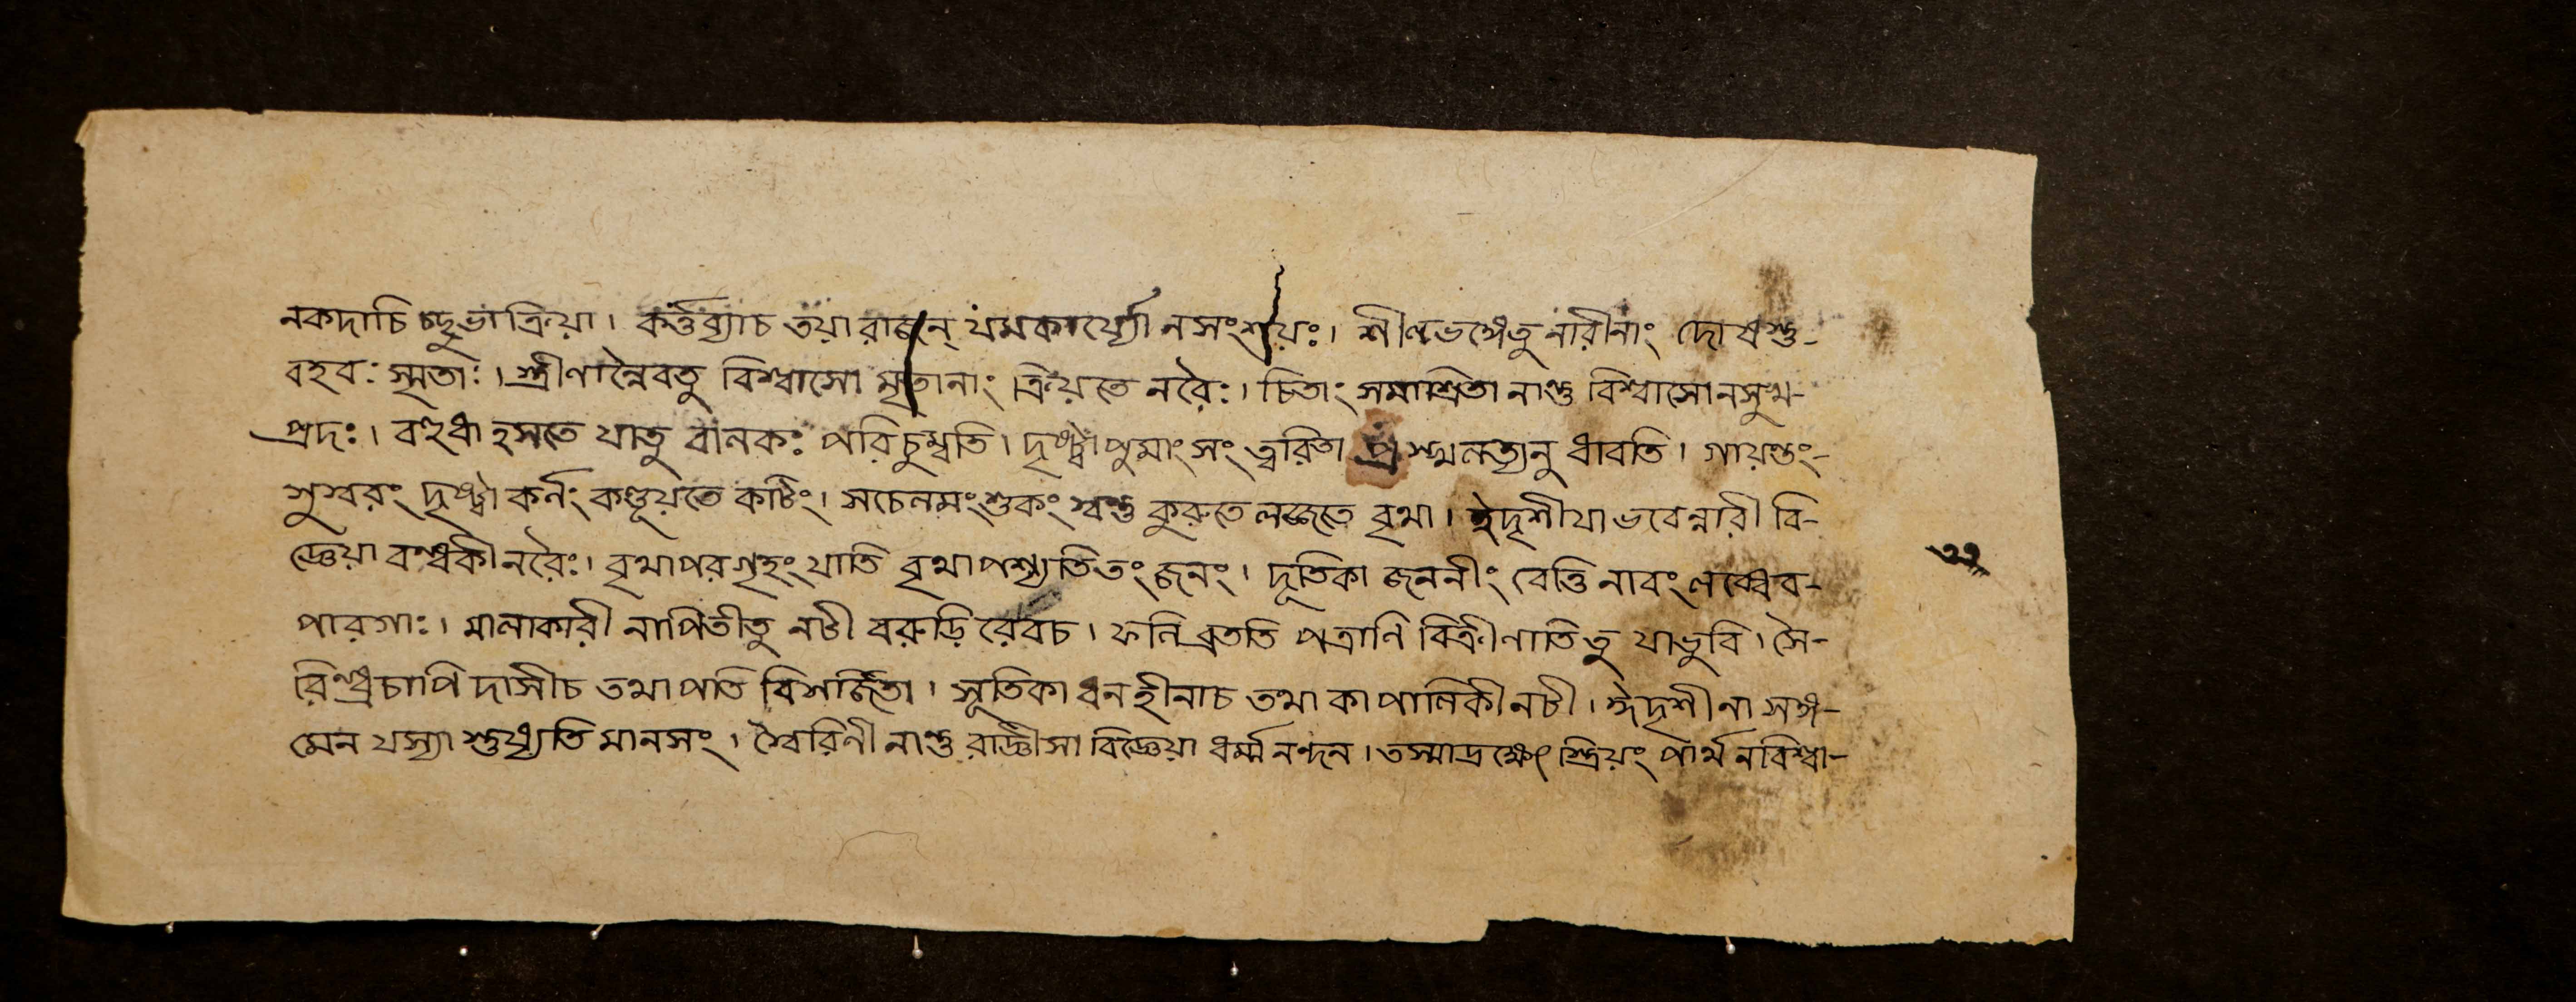 নকদাচি চ্ছুভাক্রিয়া। কর্ত্তব্যাচ তয়া রাজন্ যমকার্য্যো নসংশ্রয়ঃ। শীলভঙ্গেতু নারীনাং দোষাস্তু-
বহবঃ স্মৃতাঃ। স্ত্রীণান্নৈবতু বিশ্বাসো মৃতানাং ক্রিয়তে নরৈঃ। চিতাং সমাশ্রিতা নান্তু বিশ্বাসোনসুখ-
প্রদঃ। বহুধা হসতে যাতু বালকঃ পরিচুম্বতি। দৃষ্ট্বাপুমাংসং ত্বরিতা প্রস্খলত্যনু ধাবতি। গায়ন্তং-
সুস্বরং দৃষ্ট্বা কর্নং কণ্ডূয়তে কটিং। সচেলমংশুকং স্বন্তু কুরুতে লজ্জতে বৃথা। ইদৃশীযা ভবেন্নারী বি-
জ্ঞেয়া বন্ধকী নরৈঃ। বৃথাপরগৃহং যাতি বৃথা পশ্যতিতং জনং। দূতিকা জননীং বেত্তি নাবং লব্ধেব-
পারগাঃ। মালাকারী নাপিতীতু নটী বরুড়ি রেবচ। ফনি ব্রততি পত্রাণি বিক্রীনাতি তু যাভুবি। সৈ-
রিন্ধ্রচাপি দাসীচ তথা পতি বিসর্জিতা। সূতিকা ধনহীনাচ তথা কাপালিকী নটী। ঈদৃশীনা সঙ্গ-
মেন যস্যা শুধ্যতি মানসং। স্বৈরিনী নান্তু রাজ্ঞীসা বিজ্ঞেয়া ধর্ম্ম নন্দন। তস্মাদ্রক্ষেৎ স্ত্রিয়ং পার্থ নবিশ্বা-